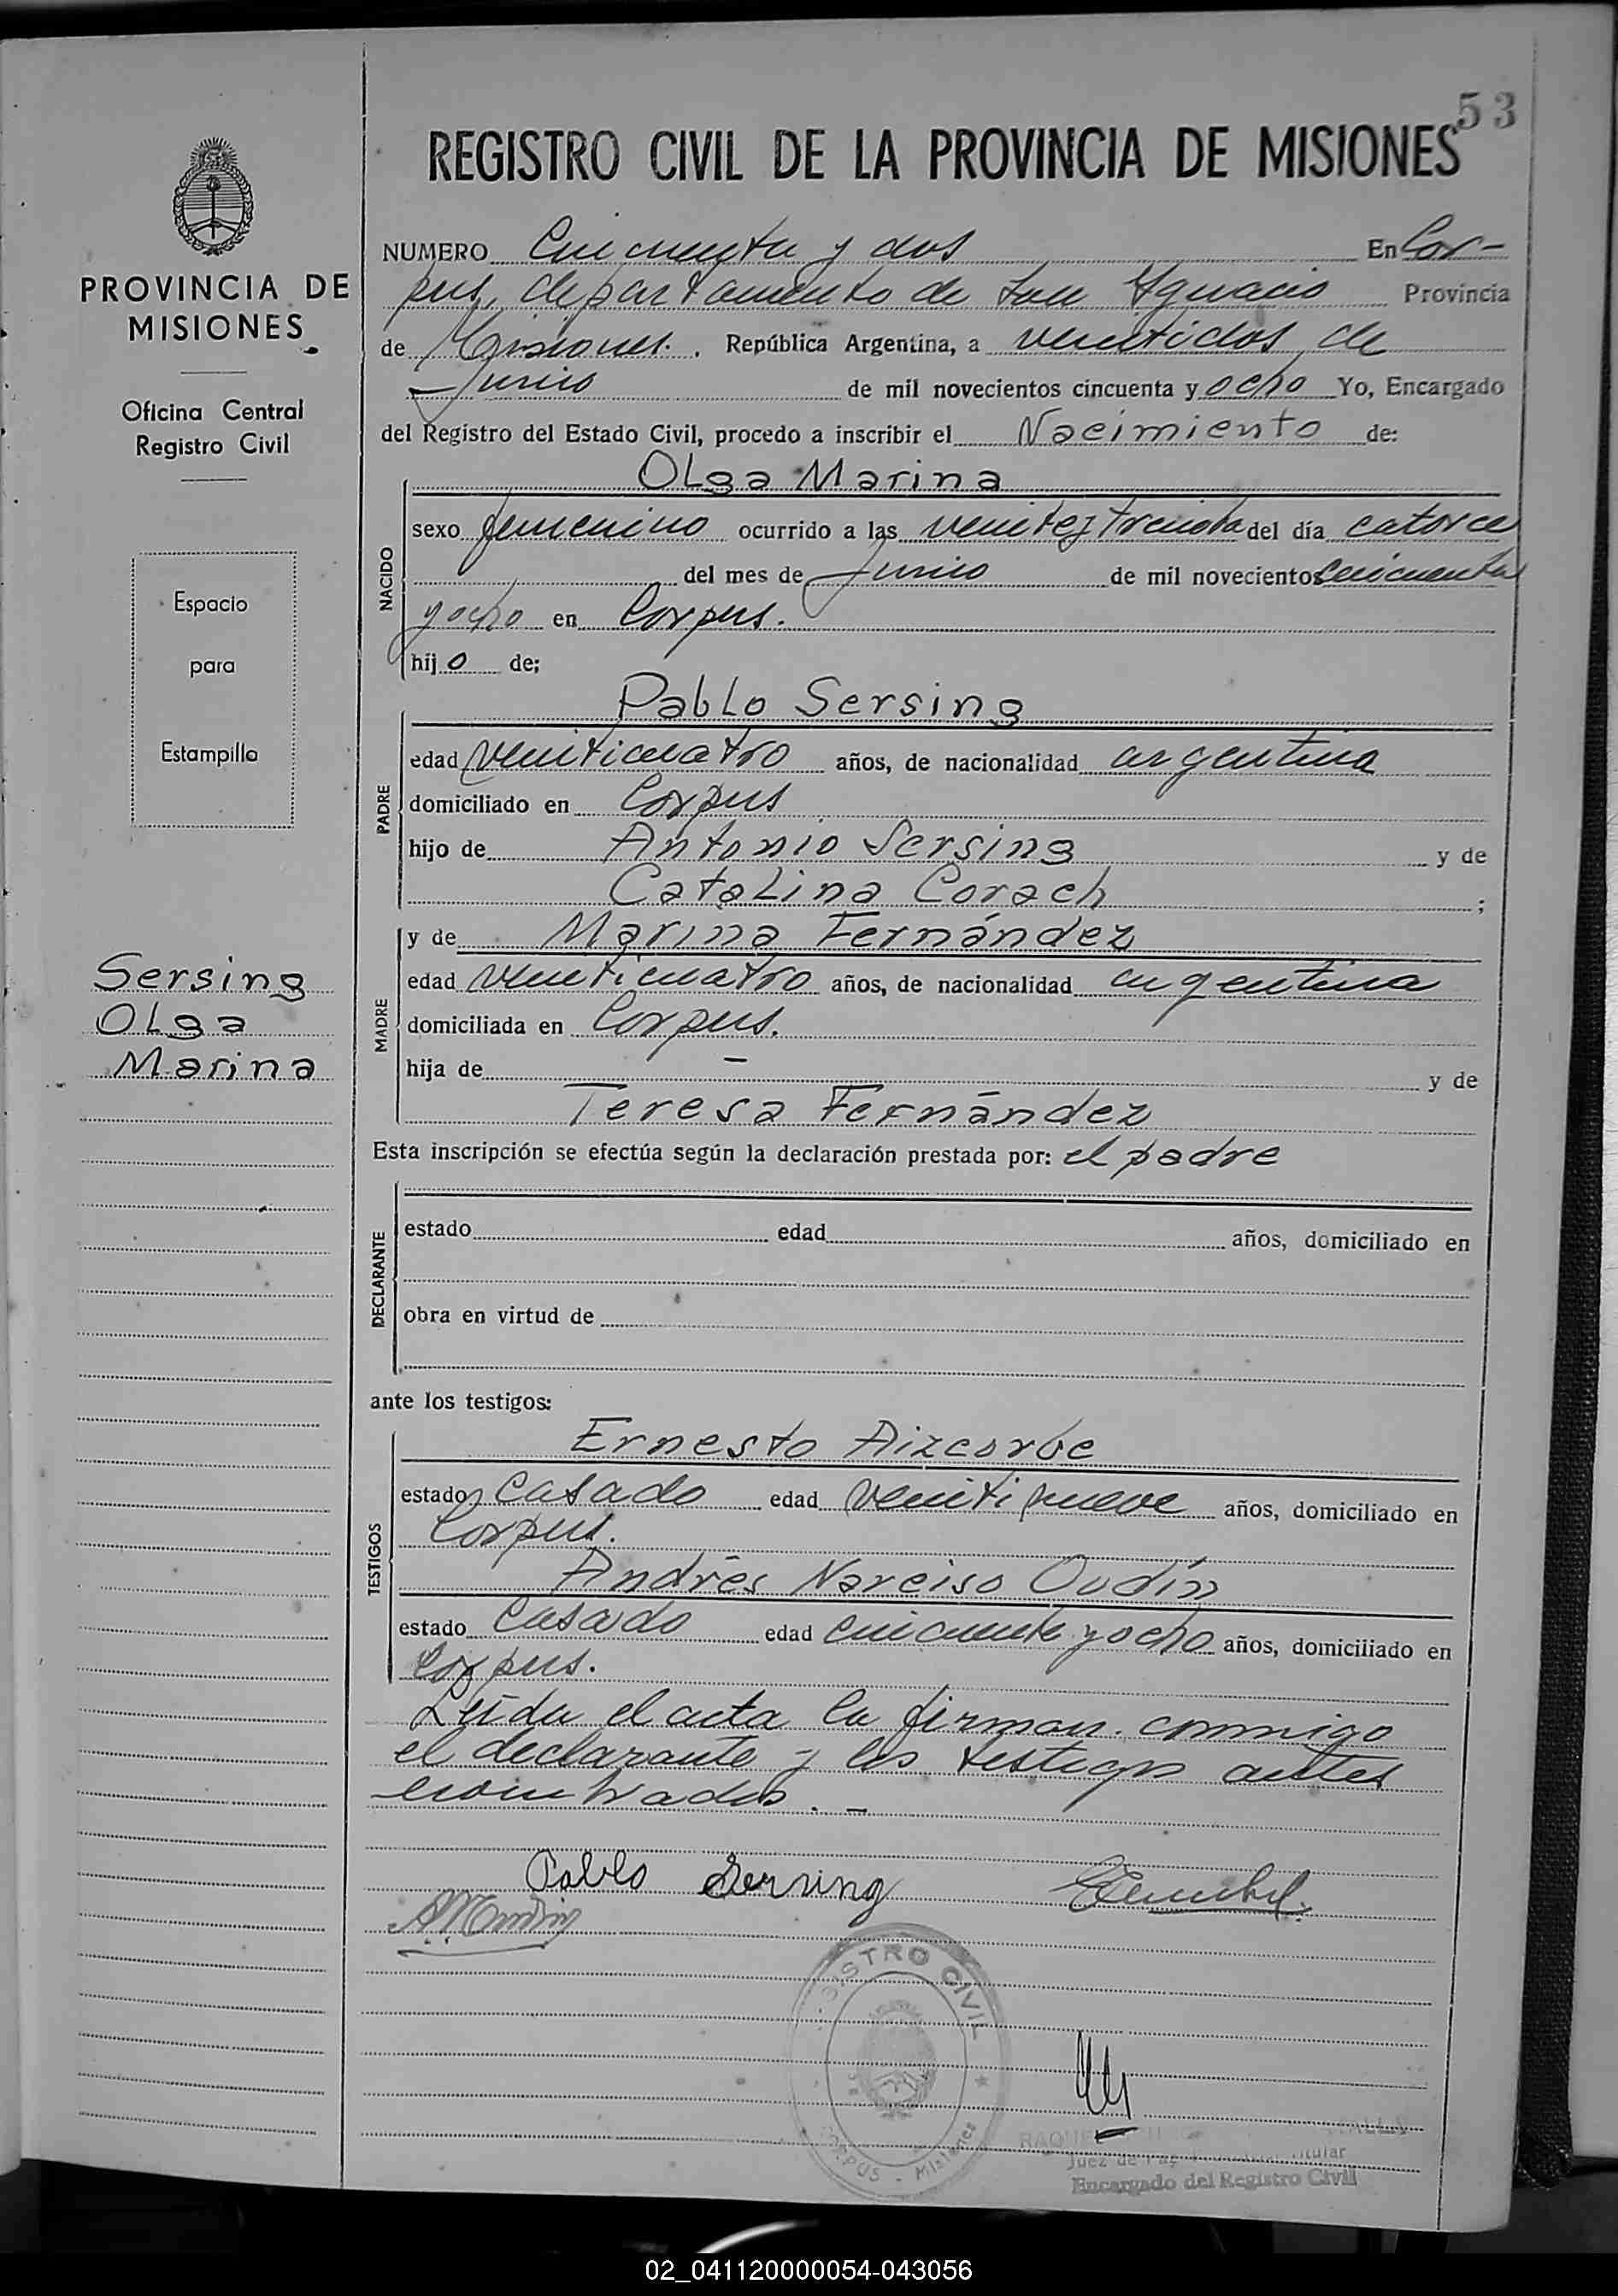 53
REGISTRO CIVIL DE LA PROVINCIA DE MISIONES
PROVINCIA DE
MISIONES
Oficina Central
Registro Civil
Espacio
para
Estampilla
Sersing
Olga
Marina
NUMERO Cincuenta y dos En Cor-
pus, departamento de San Ignacio Provincia
de Misiones. República Argentina, a veintidos de
Junio de mil novecientos cincuenta y ocho Yo, Encargado
del Registro del Estado Civil, procedo a inscribir el Nacimiento de:
NACIDO
Olga Marina
sexo femenino ocurrido a las veinte y treinta del día catorce
del mes de Junio de mil novecientos cincuenta
y ocho en Corpus.
hijo de;
PADRE
Pablo Sersing
edad veinticuatro años, de nacionalidad argentina
domiciliado en Corpus
hijo de Antonio Sersing y de
Catalina Corach ;
MADRE
y de Marina Fernández
edad veinticuatro años, de nacionalidad argentina
domiciliada en Corpus.
hija de — y de
Teresa Fernández
Esta inscripción se efectúa según la declaración prestada por: el padre
DECLARANTE
estado edad años, domiciliado en
obra en virtud de
ante los testigos:
TESTIGOS
Ernesto Aizcorbe
estado casado edad veintinueve años, domiciliado en
Corpus.
Andrés Narciso Oudín
estado casado edad cincuenta y ocho años, domiciliado en
Corpus.
Leída el acta la firman conmigo
el declarante y los testigos antes
nombrados. —
Pablo Sersing
REGISTRO CIVIL
CORPUS - Misiones
RAQUEL
Juez de Paz Titular
Encargado del Registro Civil
02_041120000054-043056